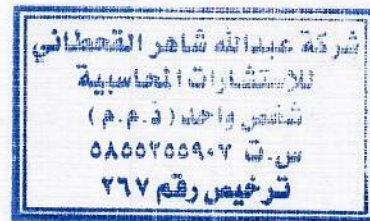 شركة عبدالله شاهر القحطاني
للاستشارات المحاسبية
شخص واحد ( ذ.م.م )
س.ت ٥٨٥٥٢٥٥٩٠٢
ترخيص رقم ٢٦٧